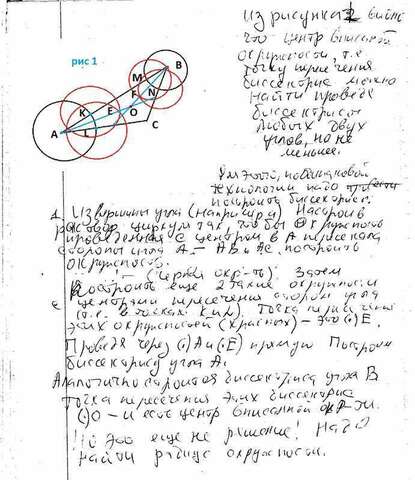 рис 1
Из рисунка 1 видно
что центр вписаной
окружности, т.е
точку пересечения
биссектрис можно
найти проведя
биссектрисы
любых двух
углов, но не
меньшее.
B
M
N
F
E
K
O
A
L
C
Для этого, по одинаковой
технологии надо
построить биссектрис.
1. Из вершины угла (например А) Настроив
раствор циркуля так чтобы окружность
проведенная с центром в А пересекала
стороны угла А - АВ и АС. построить
окружность.
(Черная окр-ть). Затем
Построить еще 2 такие окружности
с центрами пересечения сторон угла
(т.е. в точках К и L). Точка пересечения
этих окружностей (красных) - это (·)Е.
Проведя через (·)А и (·)Е прямую Построим
биссектрису угла А.
Аналогично строится биссектриса угла В
Точка пересечения этих биссектрис
(·)О - и есть центр вписанной окр-ти.
Но это еще не решение! Надо
найти радиус окружности.